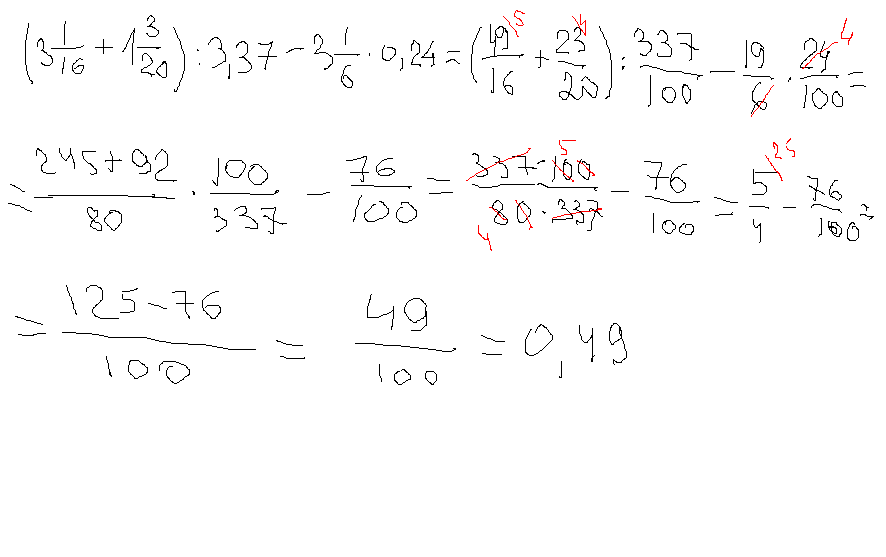 (3 1/16 + 1 3/20) : 3,37 − 3 1/6 · 0,24 = (49/16 ⁵ + 23/20 ⁴) : 337/100 − 19/6 · 24/100 ⁴ =
= (245+92)/80 · 100/337 − 76/100 = (337 · 100 ⁵)/(80 ₄ · 337) − 76/100 = 5/4 ²⁵ − 76/100 =
= (125−76)/100 = 49/100 = 0,49